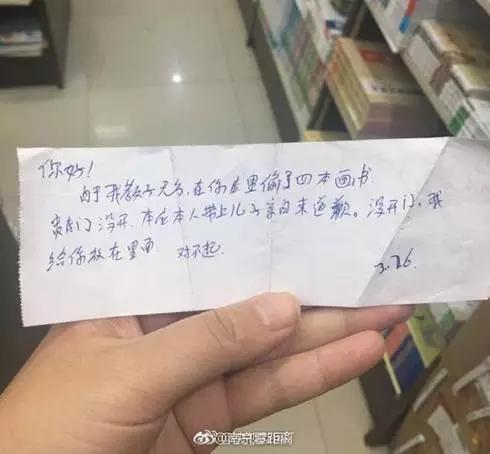 你好!
由于我教子无方,在你店里偷了四本画书.
门没开.本在本人带上儿子亲自来道歉。没开门,我
给你放在里面 对不起.
2.26.
@南京零距离